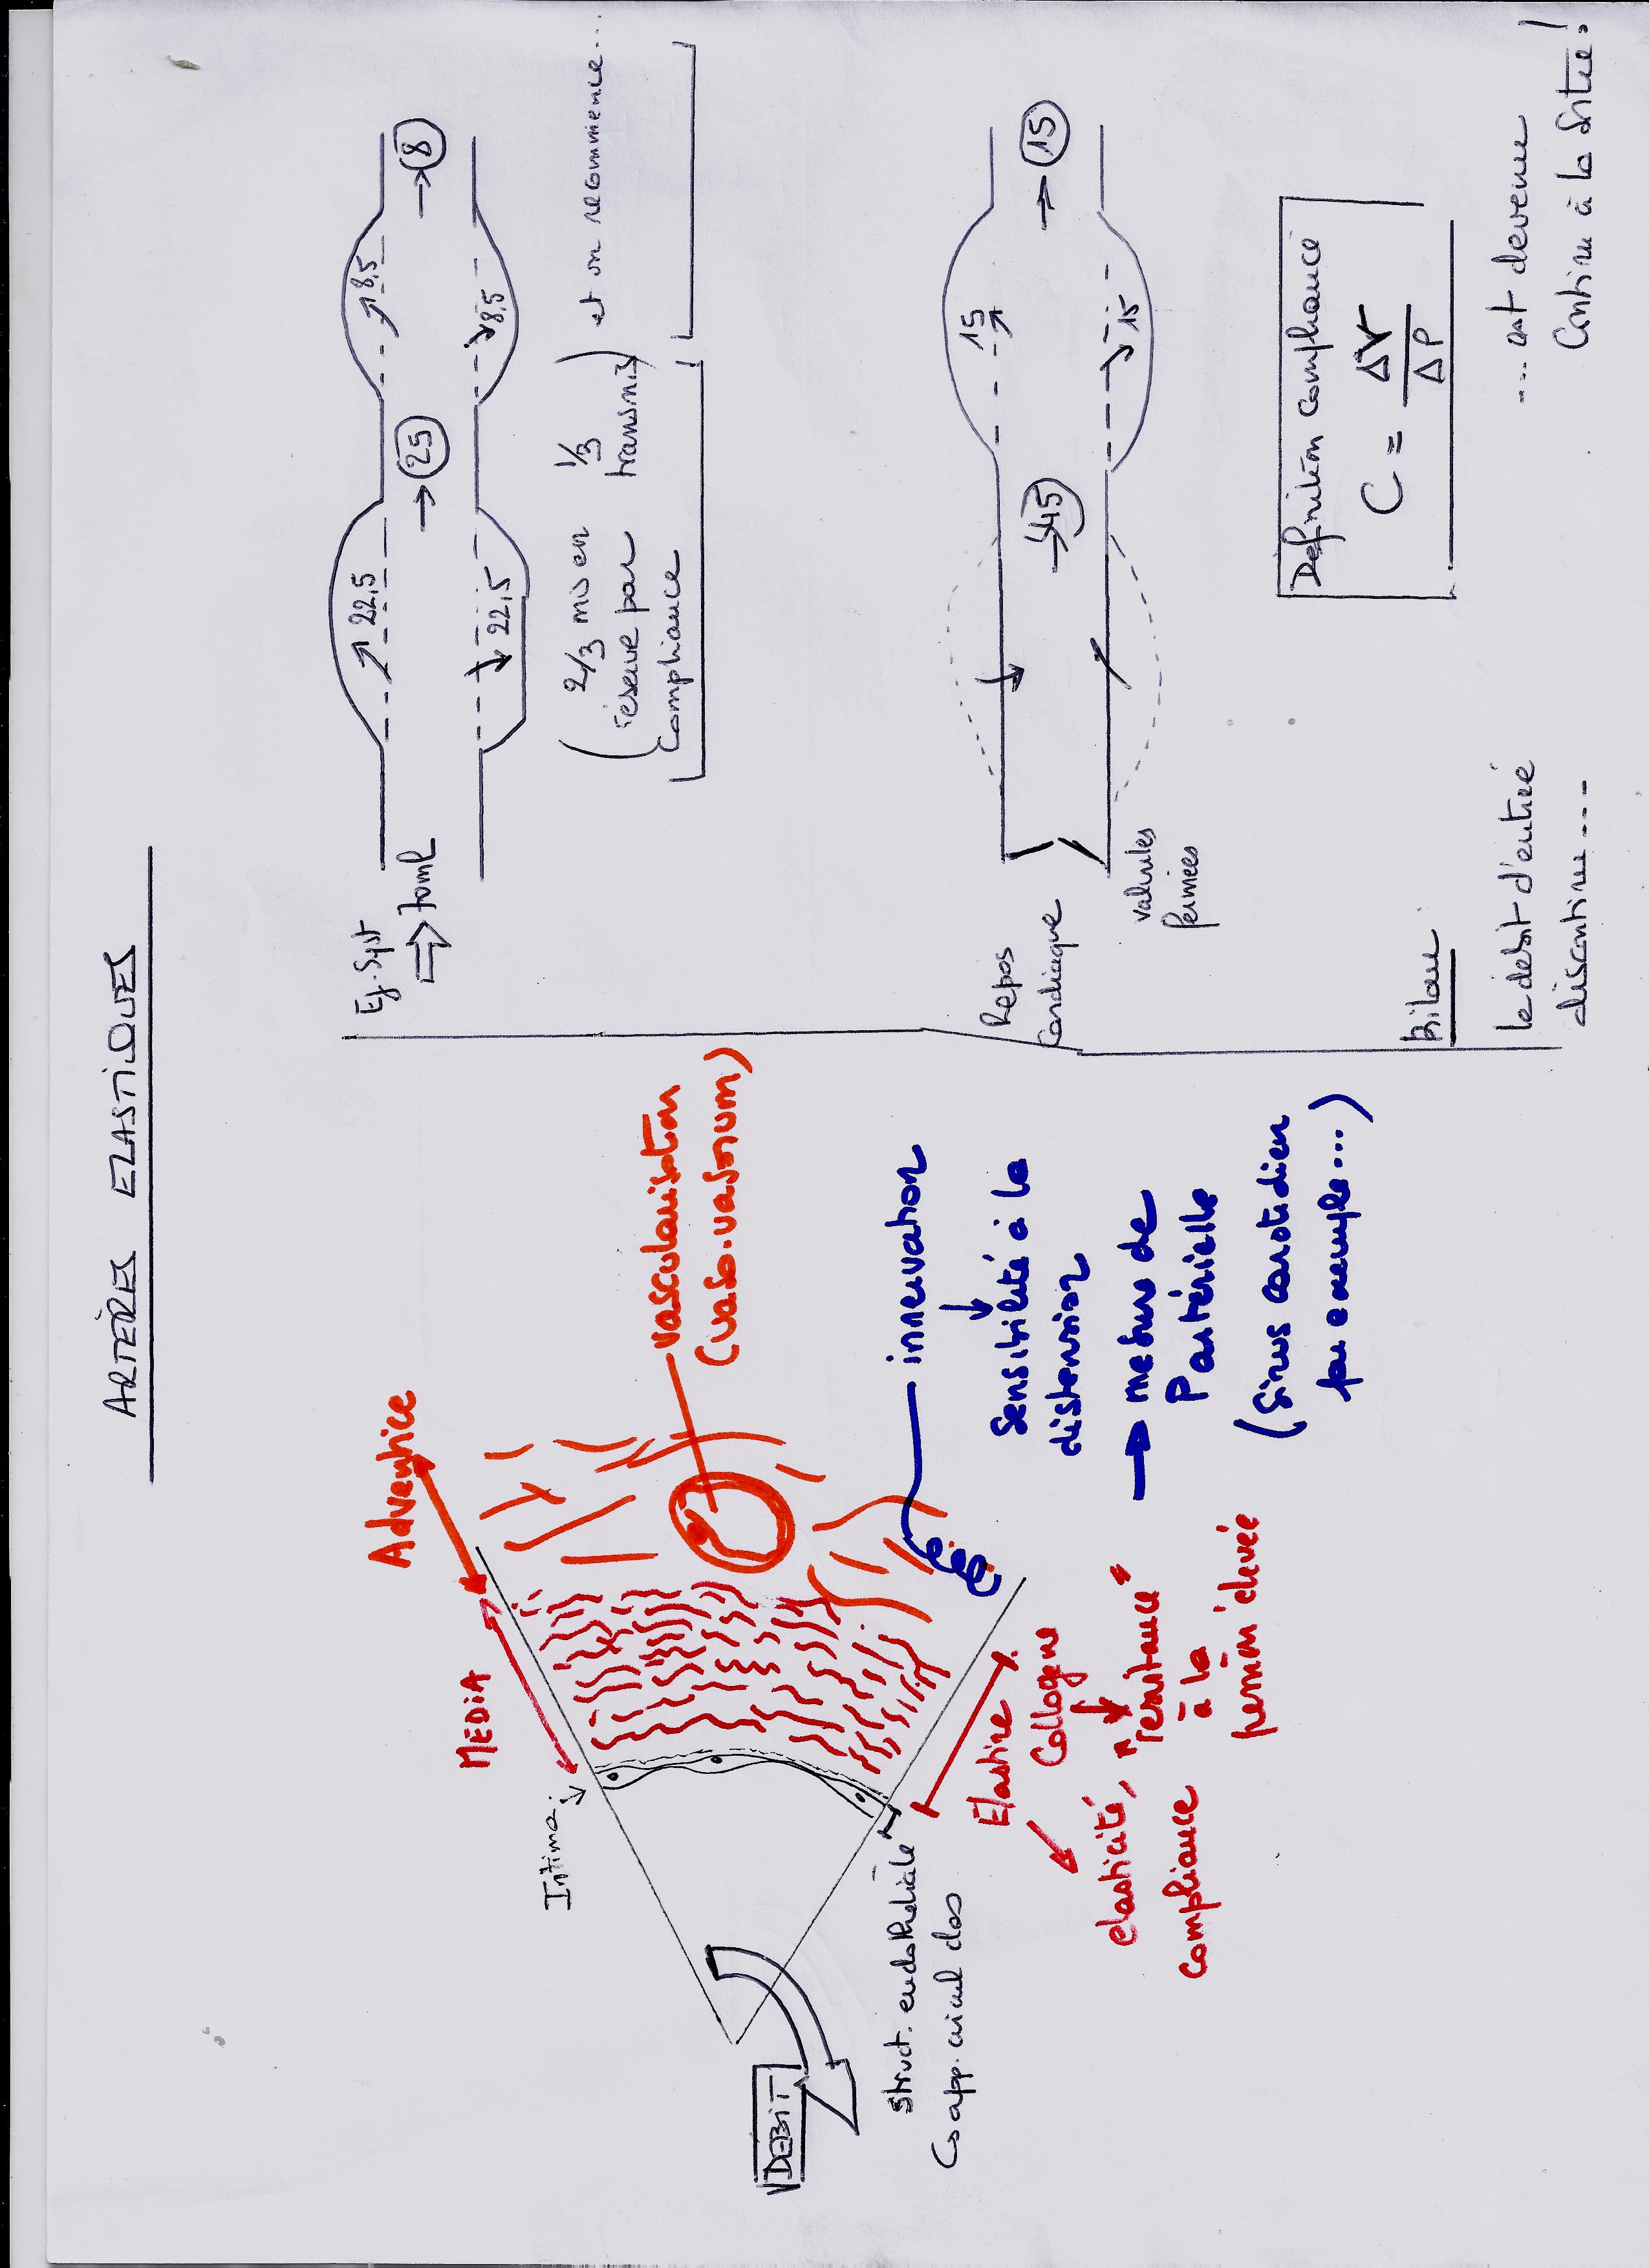 ARTÈRES ELASTIQUES
Adventice
MEDIA
Intima
vascularisation
(vaso.vasorum)
innervation
Sensibilité à la
distension
→ mesure de
P artérielle
(Sinus carotidien
par exemple...)
DEBIT
Struct. endothéliale
Co app. circul clos
Elastine
Collagène
elasticité,
compliance
"resistance"
à la
pression élevée
Ej. Syst
⇒ 70ml
22,5
→ 25
8,5
→ 8
22,5
8,5
(2/3 mis en
réserve par
compliance
1/3
transmis)
et on recommence...
Repos
Cardiaque
valvules
fermées
→ 45
15
→ 15
15
Définition compliance
C = ΔV
ΔP
bilan
le débit d'entrée
discontinu ---
.... est devenu
Continu à la sortie!